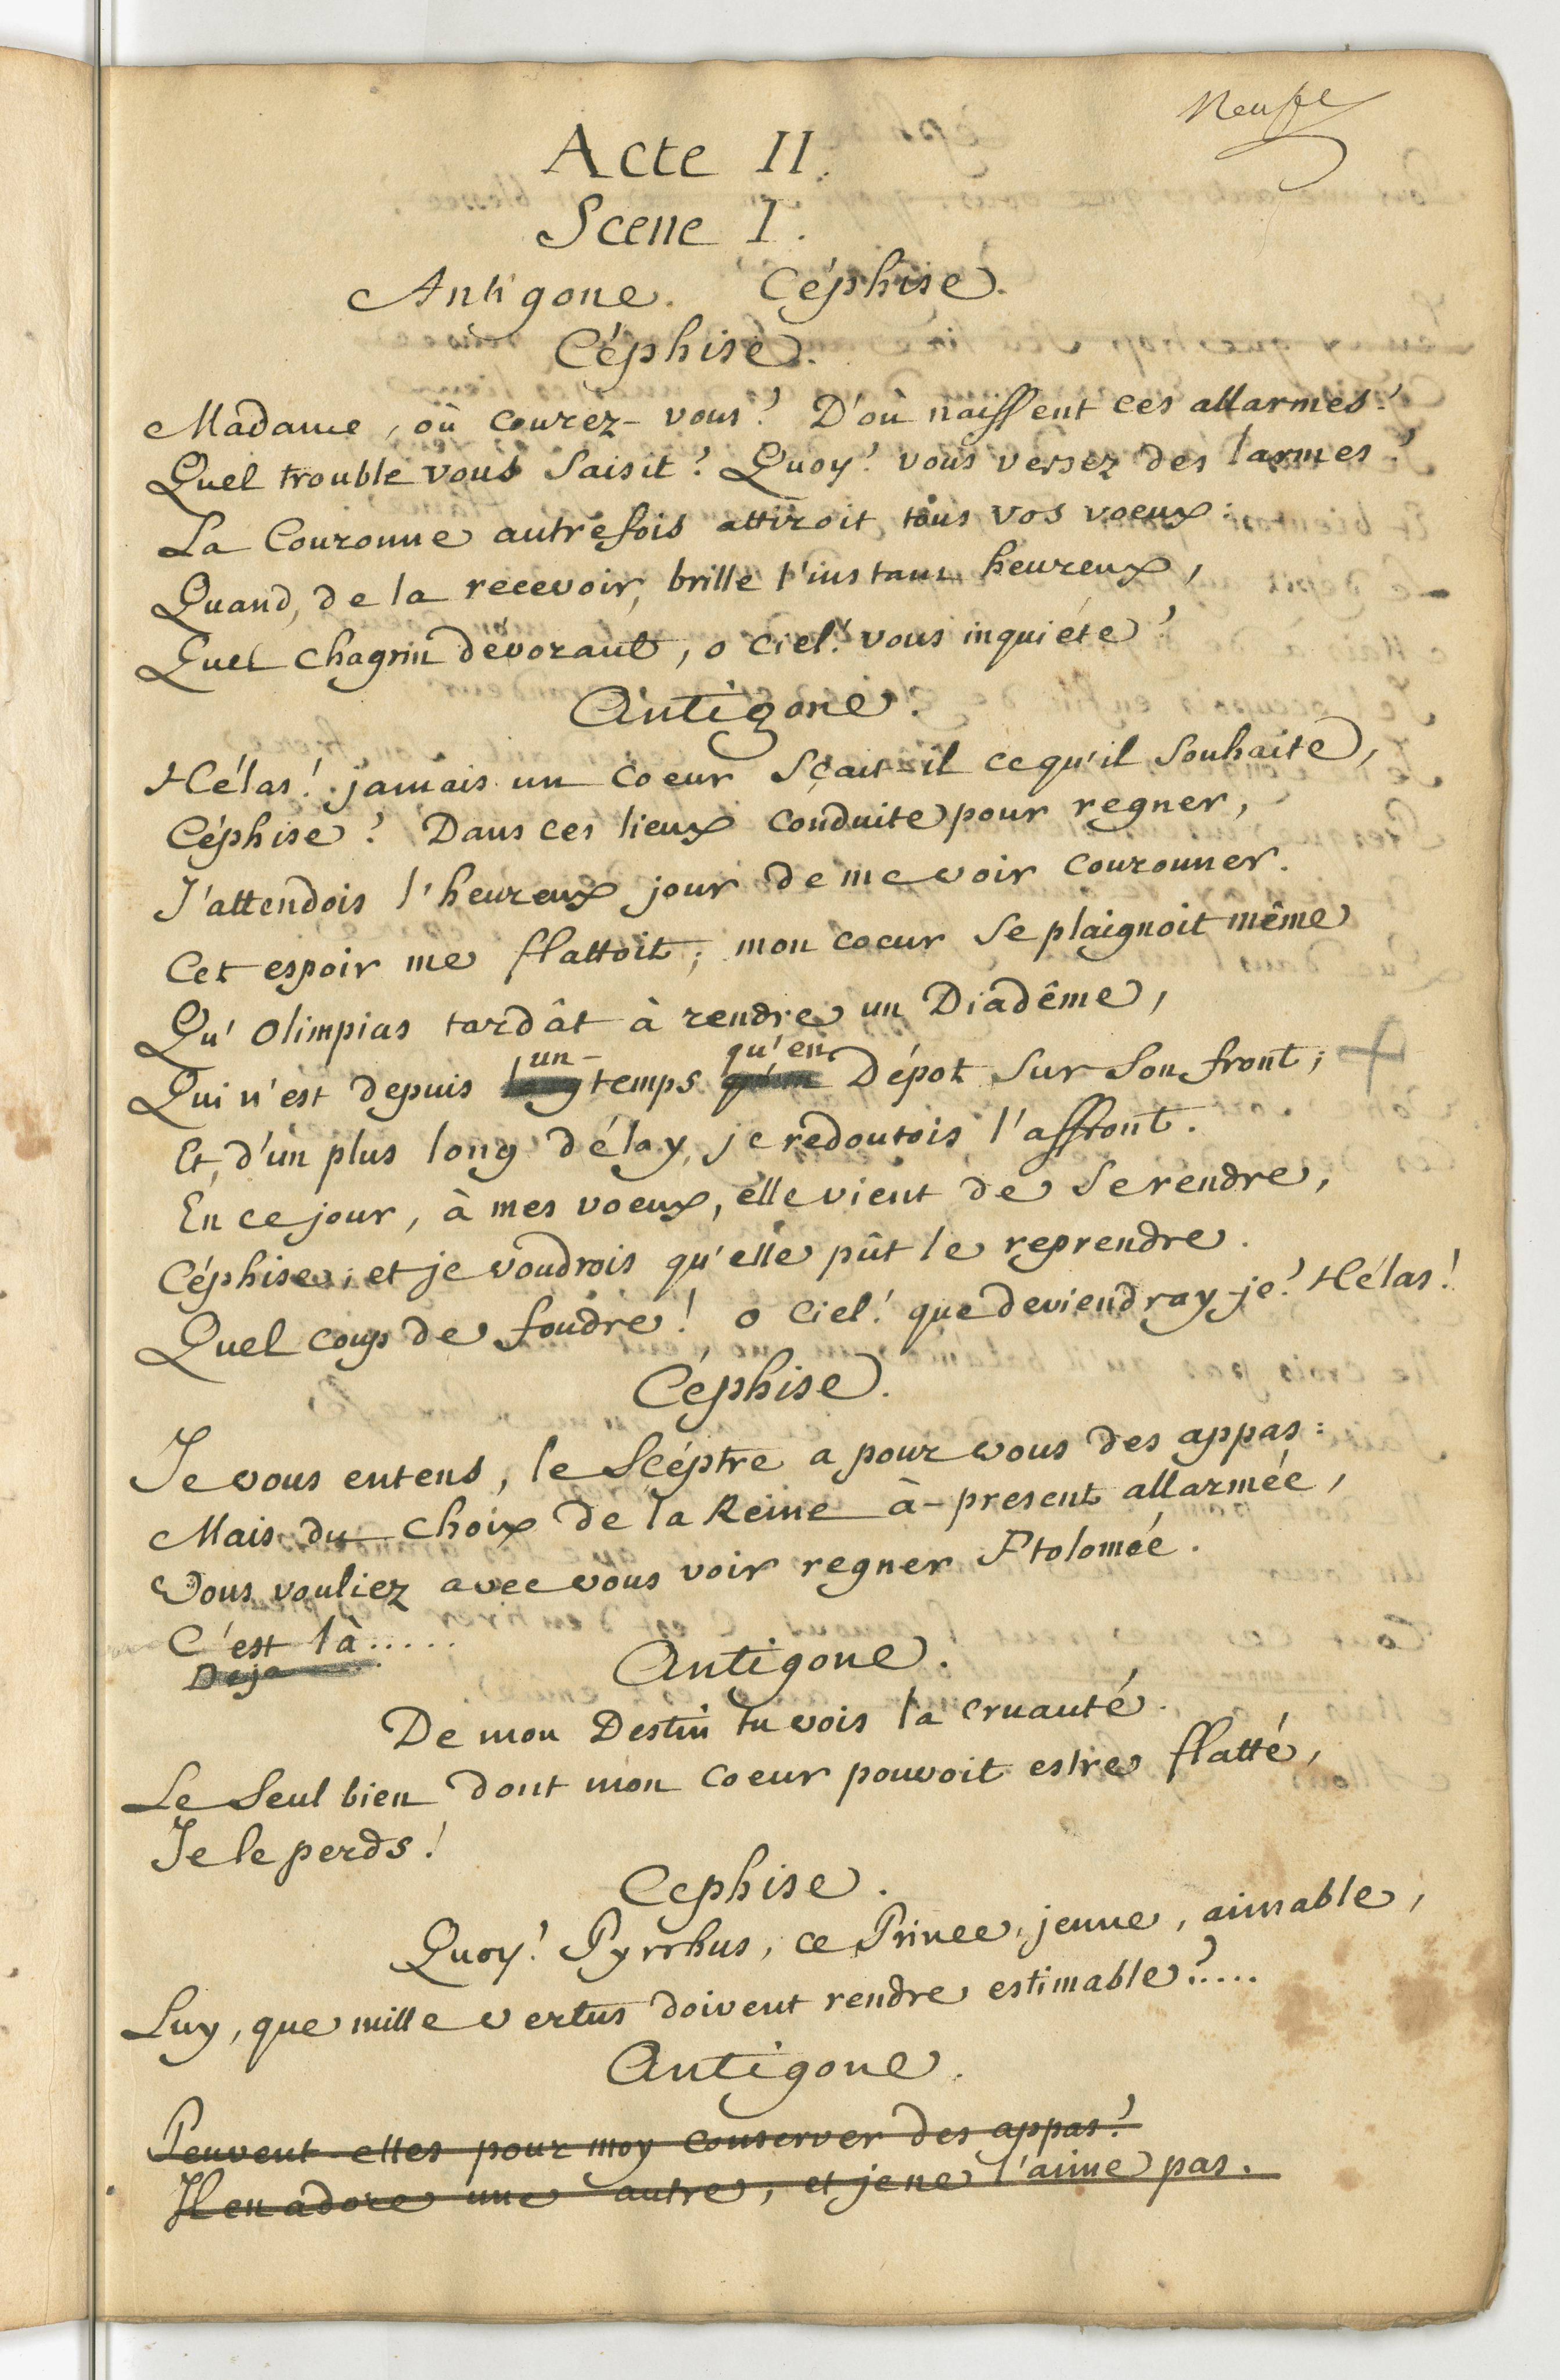 Neufve
Acte II.
Scene I.
Antigone. Céphise.
Céphise.
Madame, où courez-vous? D'où naissent ces allarmes?
Quel trouble vous saisit? Quoy? vous versez des larmes?
La Couronne autrefois attiroit tous vos voeux:
Quand, de la recevoir, brille l'instant heureux,
Quel chagrin dévorant, o Ciel! vous inquiéte?
Antigone.
Hélas! jamais un coeur sçait-il ce qu'il souhaite,
Céphise? Dans ces lieux conduite pour regner,
J'attendois l'heureux jour de me voir couronner.
Cet espoir me flattoit; mon coeur se plaignoit même
Qu'Olimpias tardât à rendre un Diadême,
un- qu'en
Qui n'est depuis long temps Dépot sur son front; +
Et, d'un plus long délay, je redoutois l'affront.
En ce jour, à mes voeux, elle vient de se rendre,
Céphise; et je voudrois qu'elle pût le reprendre.
Quel coup de foudre! o Ciel! que deviendray-je? Hélas!
Céphise.
Je vous entens, le Scéptre a pour vous des appas:
Mais du choix de la Reine à-present allarmée,
Vous vouliez avec vous voir regner Ptolomée.
C'est là.....
Deja
Antigone.
De mon Destin tu vois la cruauté.
Le seul bien dont mon coeur pouvoit estre flatté,
Je le perds!
Cephise.
Quoy! Pyrrhus, ce Prince, jeune, aimable,
Luy, que mille vertus doivent rendre estimable?.....
Antigone.
Peuvent-elles pour moy conserver des appas?
Il en adore une autre, et je ne l'aime pas.